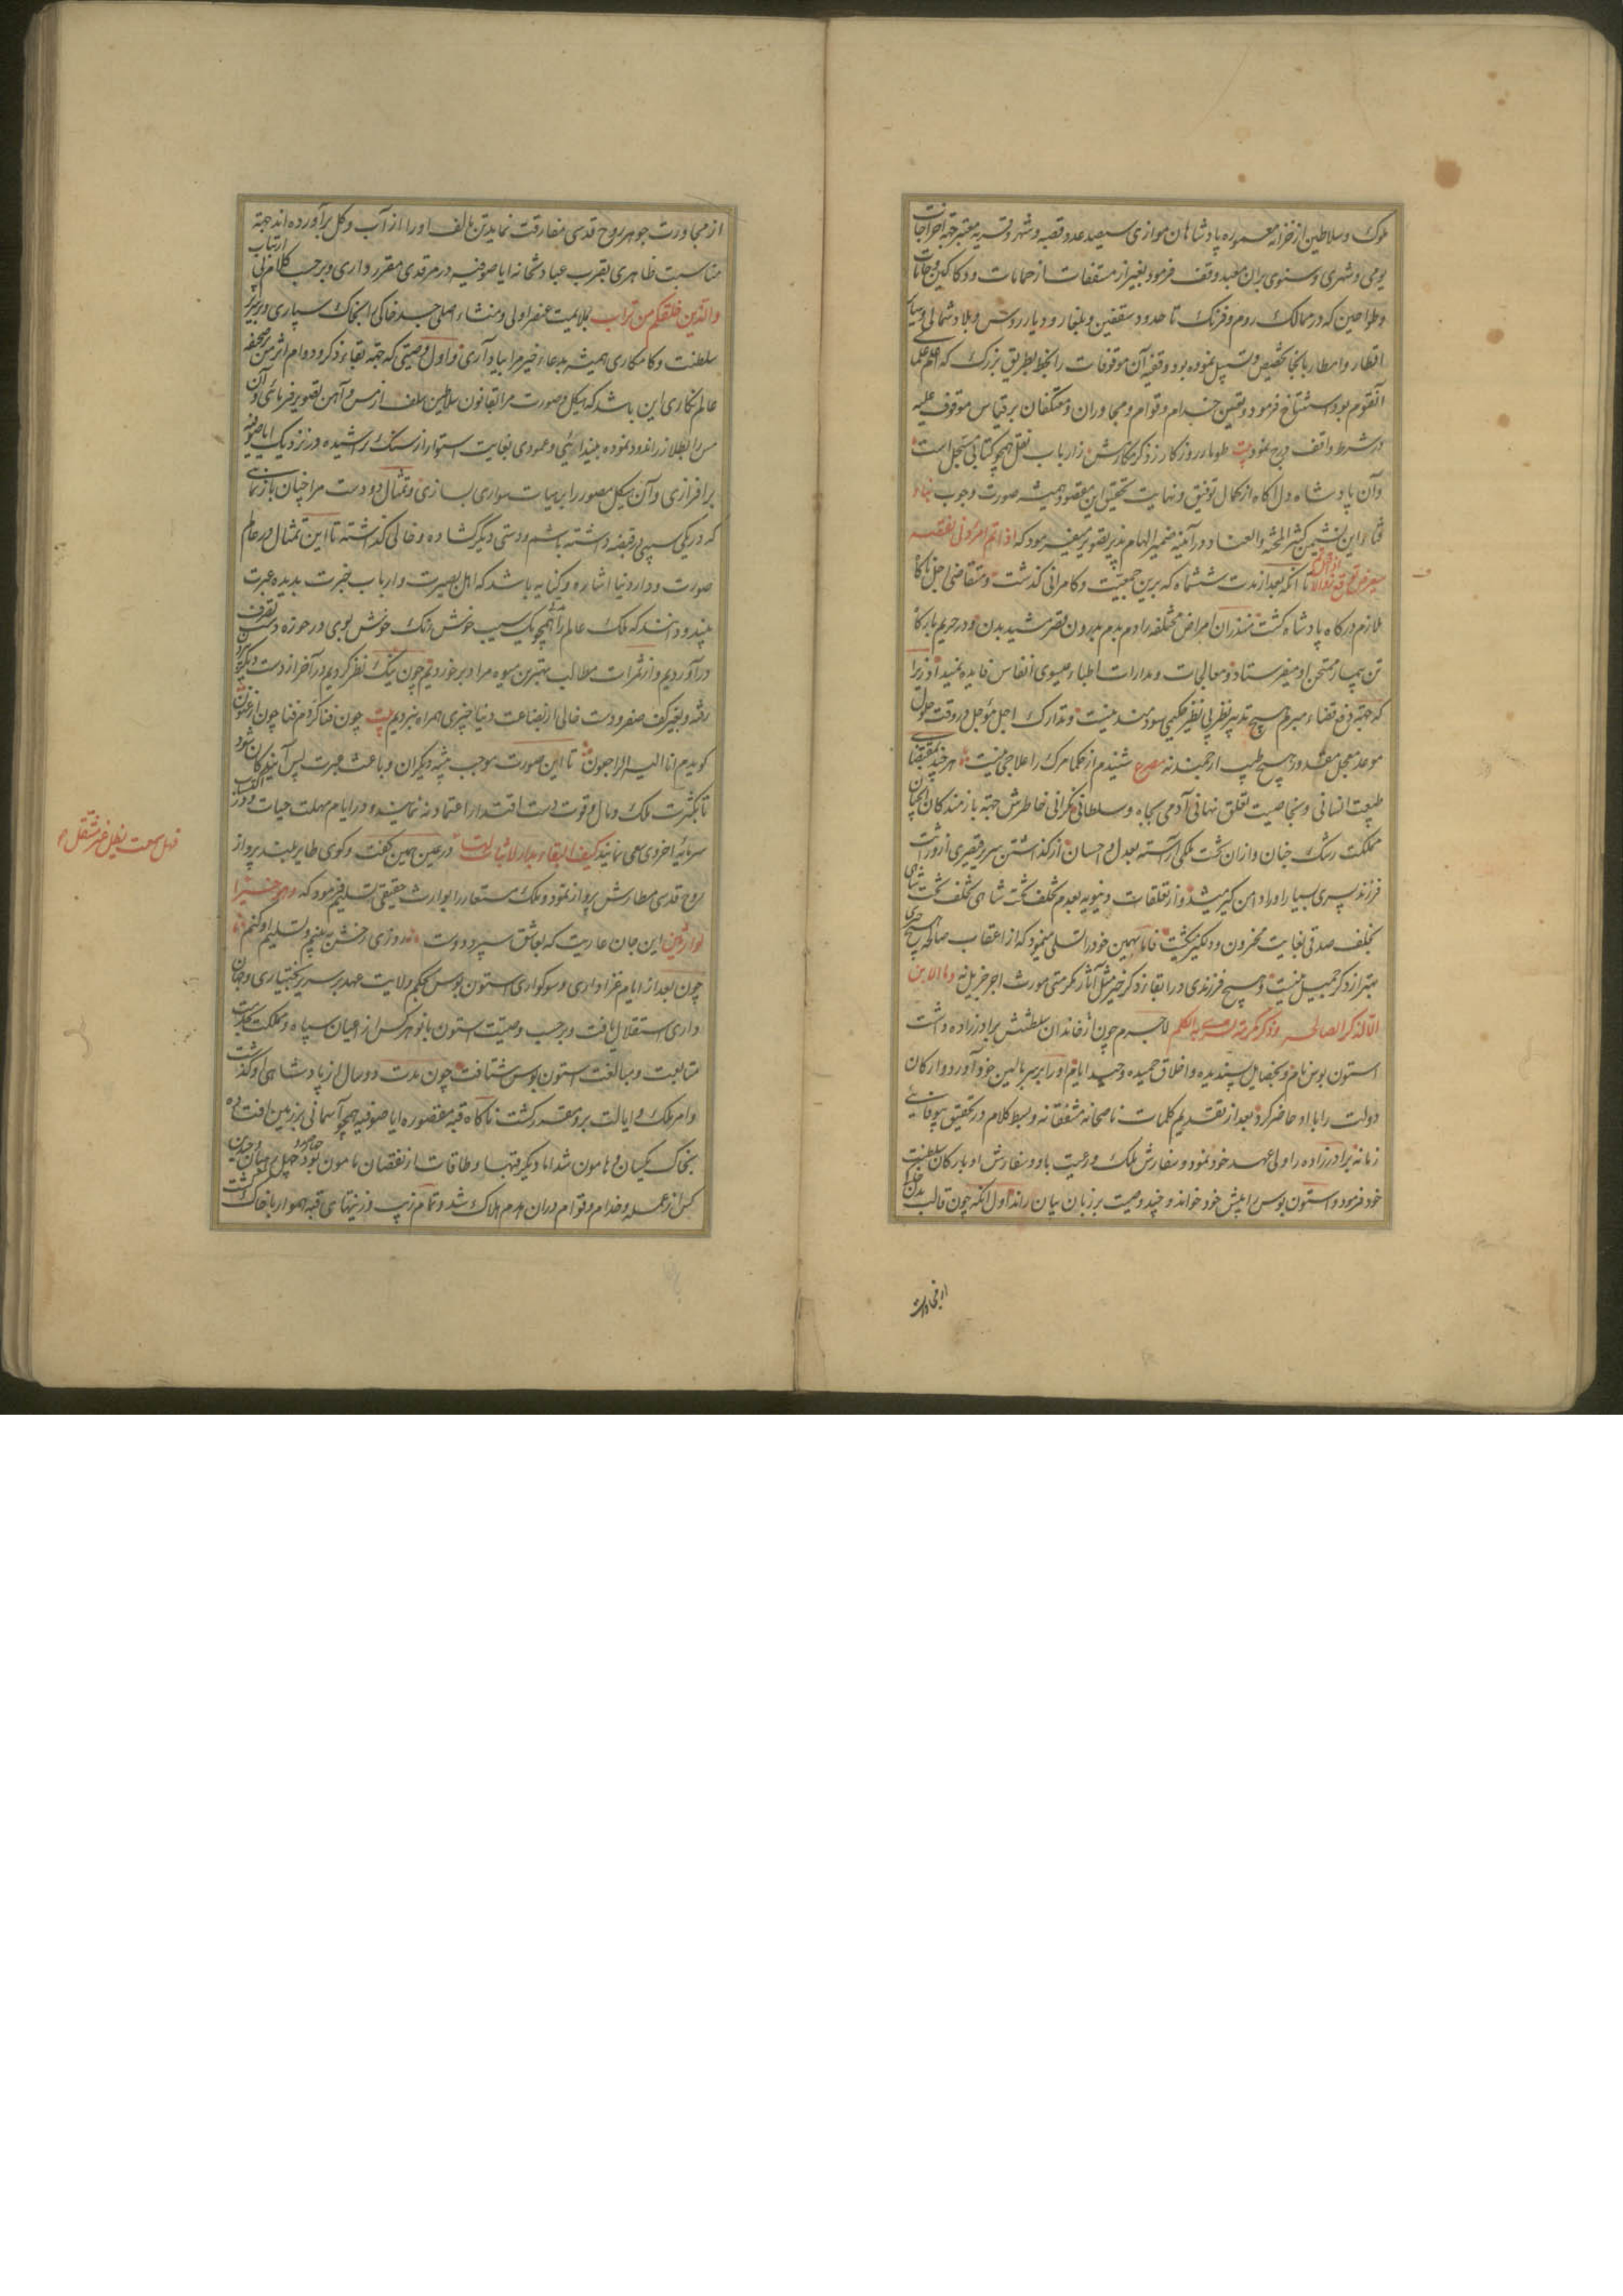 ملوک و سلاطین از خزانه معموره پادشاهان موازی سیصد عدد قصبه و شهر و قریه معتبر جهة اخراجات
یومی و شهری و سنوی بران معبد وقف فرمود بغیر از مسقفات از حمامات و دکاکین و خانات
و طواحین که در ممالک روم و فرنک تا حدود سقسین و بلغار و دیار روس و بلاد شمالی و سایر
اقطار و امصار بانجا تخصیص و تسبیل نموده بود و وقفیه آن موقوفات را بخط بطریق بزرک که اعلم علما
آنقوم بود استنساخ فرمود و تعیین خدام و قوام و مجاوران و معتکفان بر قیاس موقوف علیه
در شرط واقف درج نمود بیت طومار روزکار ز ذکر مکارمش نزد ارباب نقل همچو کتابی مسجل است
و آن پادشاه دل آکاه از کمال توفیق و نهایت تحقیق این مقصود همیشه صورت وجوب فناء
فناء این نشیمن کثیر المحنة و العناء در آئینه ضمیر الهام پذیر تصویر میفرمود که اذا تم امر دنی نقصه
توقع زوالا تا آنکه بعد از مدت ششماه که برین جمعیت و کامرانی کذشت و متقاضی اجل ناکاه
ملازم درکاه پادشاه کشت منذران امراض مختلفه را دم بدم بدرون قصر مشید بدن و در حریم بارکاه
تن بیمار ممتحن او میفرستاد و معالجات و مدارات اطباء عیسوی انفاس فایده نمیداد زیرا
که جهة دفع قضاء مبرم هیچ تدبیر نظر بی نظیر حکیمی سودمند نیست و تدارک اجل مؤجل در وقت حلول
موعد معجل مقدور هیچ طبیب ارجمند نه مصرع شنیدم از حکما مرک را علاجی نیست هر چند بمقتضای
طبیعت انسانی و بخاصیت تعلق نهانی آدمی بجاه و سلطانی نکرانی خاطرش جهة بازمندکان آنچنان
مملکت رشک جنان و ازان کشت ملکی آراسته بعدل و احسان از کذاشتن سریر قیصری از وراثت
فرزند پسری بسیار او را دامن کیر میشد و از تعلقات دنیویه بعدم تخلف تخت شاهی بخلف
بخلف صدقی بغایت محزون و دلکیر میکشت فاما بهمین خود را تسلی مینمود که از اعقاب صالحه هیچ چیزی
بهتر از ذکر جمیل نیست و هیچ فرزندی در ابقاء ذکر خیر مثل آثار مکرمتی مورث اجر جزیل نه و ما الابن
الا لذکر الصالح و ذکر مکرمة لاجرم چون از خاندان سلطنتش برادرزاده داشت
استون یوس نام و بخصایل پسندیده و اخلاق حمیده وحید ایام او را بر سر بالین خود آورد و ارکان
دولت را با او حاضر کرد بعد از تقدیم کلمات ناصحانه مشفقانه و بسط کلام در تحقیق بیوفائی
زمانه برادرزاده را ولی عهد خود نمود و سفارش ملک و رعیت باو و سفارش او بارکان سلطنت
خود فرمود و استون یوس را پیش خود خواند و چند وصیت بر زبان بیان راند اول آنکه چون قالب بدن
از مجاورت
از مجاورت جوهر روح قدسی مفارقت نماید تن تالف او را از آب و کل برآورده اند جهة
مناسبت ظاهری بقرب عبادتخانه ایاصوفیه در مرقدی مقرر داری و بر حسب کلام
والذین خلقکم من تراب بملایمت عنصر اولی و منشاء اصلی جسد خاکی را بخاک سپاری و بر سریر
سلطنت و کامکاری همیشه بدعاء خیر مرا بیاد آری و اول وصیتی که جهة بقاء ذکر و دوام اثر من
عالم نکاری این باشد که هیکل و صورت مرا بقانون سلاطین سلف از مس و آهن تصویر فرمائی و آن
مس را بطلا زر اندود نموده بیندائی و عمودی بغایت استوار از سنک تراشیده در نزدیک ایاصوفیه
برافرازی و آن هیکل مصور را بر هیأت سواری بسازی و تمثال دو دست مرا چنان بازنمائی
که در یکی سیبی در قبضه داشته باشم و دستی دیکر کشاده و خالی کذاشته تا این تمثال در عالم
صورت و دار دنیا اشاره و کنایه باشد که اهل بصیرت و ارباب خبرت بدیده عبرت
بینند و دانند که ملک عالم را همچو یک سیب خوش رنک خوش بوی در حوزه تصرف
درآوردیم و از ثمرات مطالب بهترین میوه مراد برخوردیم چون نیک نظر کردیم در آخر از دست
رفته و بغیر کف صفر و دست خالی از بضاعت دنیا چیزی همراه نبردیم بیت چون فنا کردم فنا چون ارغنون
کویدم انا الیه الراجعون تا این صورت موجب تنبیه دیکران و باعث عبرت پس آیندکان شود
تا بکثرت ملک و مال و قوت دست اقتدار اعتماد نه نمایند و در ایام مهلت حیات در اکتساب
سرمایه اخروی سعی نمایند کیف البقاء بدار لا ثبات لها در عین همین کفت و کوی طایر بلند پرواز
روح قدسی مطارش پرواز نمود و ملک مستعار را بوارث حقیقی تسلیم فرمود که و هو خیر
الوارثین این جان عاریت که بعاشق سپرد دوست روزی رخش ببینم و تسلیم او کنم
چون بعد از ایام عزاداری و سوکواری استون یوس بحکم ولایت عهد بر سریر بختیاری و جهان
داری استقلال یافت و بر حسب وصیت استون یانو هر کس از اعیان سپاه و مملکت
متابعت و مبالغت استون یوس شتافت چون مدت دو سال از پادشاهی او کذشت
و امر ملک و ایالت برو مقرر کشت ناکاه قبه مقصوره ایاصوفیه همچو آسمانی بر زمین افتاده
بخاک یکسان و هامون شد اما دیکر قبها و طاقات از نقصان مامون بود
کس از عمله و خدام و قوام دران هدم هلاک شد و تمام زیب و زینتهای قبه هموار با خاک کشت